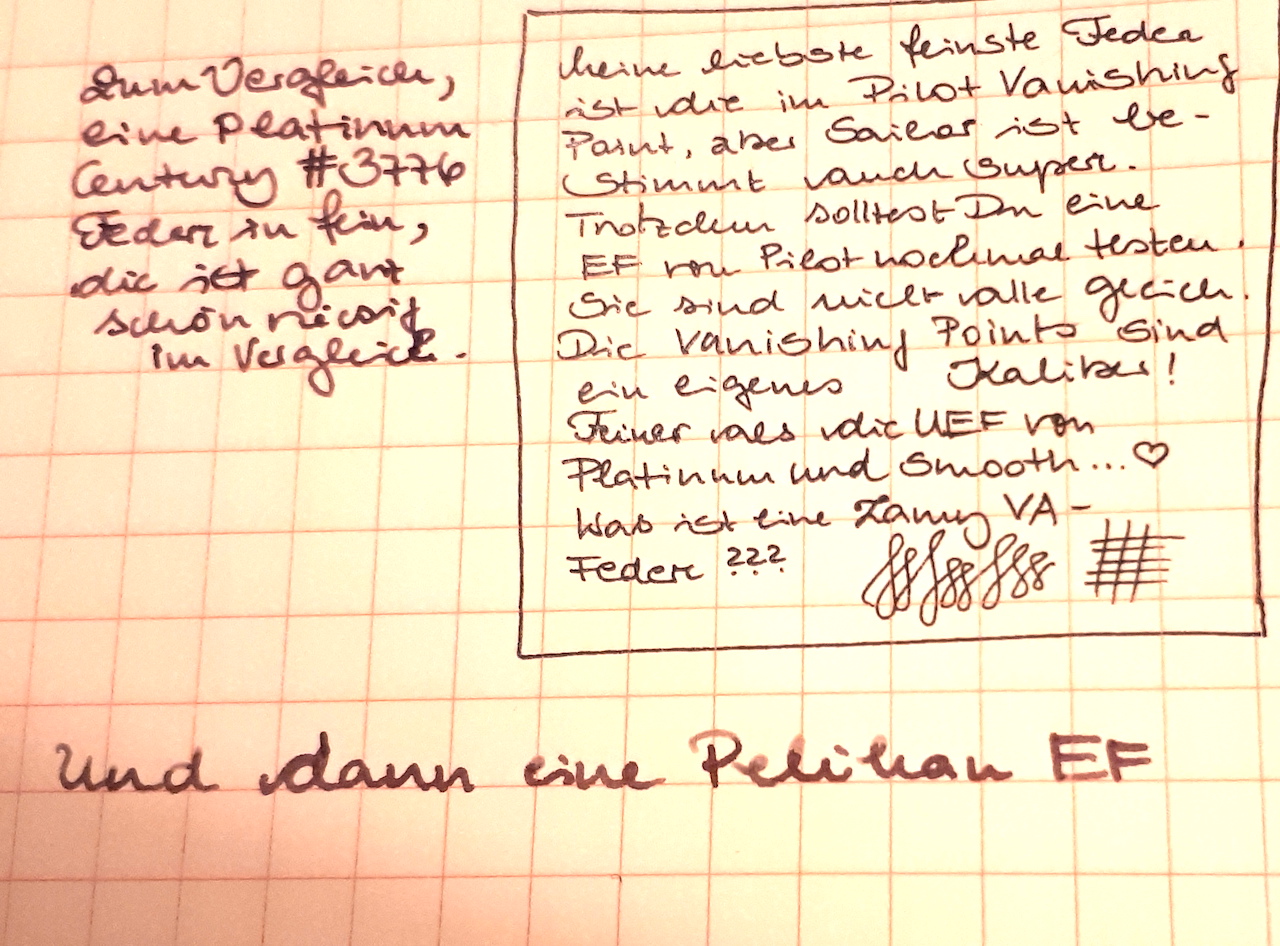 Zum Vergleich,
eine Platinum
Century #3776
Feder in fein,
die ist ganz
schön riesig
im Vergleich.
Meine liebste feinste Feder
ist die im Pilot Vanishing
Point, aber Sailor ist be-
stimmt auch super.
Trotzdem solltest Du eine
EF von Pilot nochmal testen.
Sie sind nicht alle gleich.
Die Vanishing Points sind
ein eigenes Kaliber!
Feiner als die UEF von
Platinum und smooth...♡
Was ist eine Lamy VA-
Feder ???
Und dann eine Pelikan EF